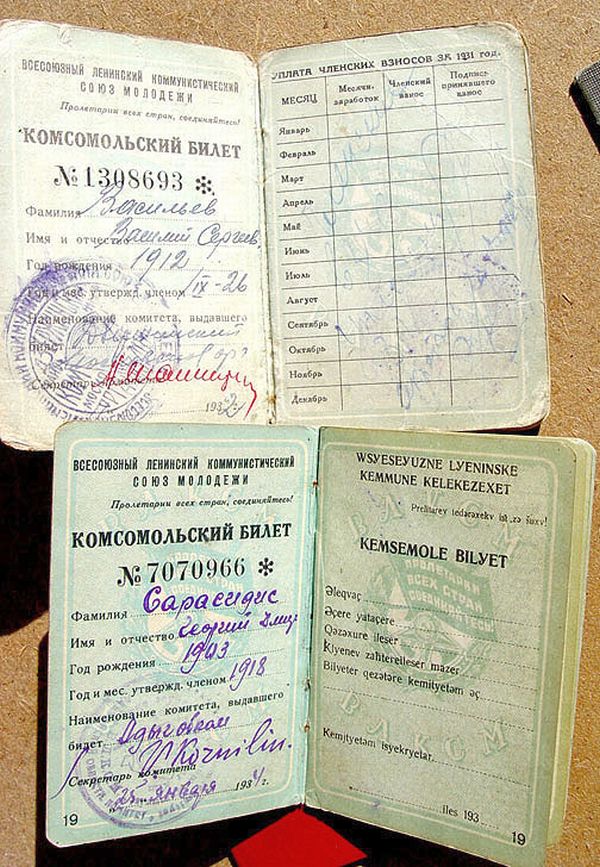 ВСЕСОЮЗНЫЙ ЛЕНИНСКИЙ КОММУНИСТИЧЕСКИЙ
СОЮЗ МОЛОДЕЖИ
Пролетарии всех стран, соединяйтесь!
КОМСОМОЛЬСКИЙ БИЛЕТ
№ 1308693 *
Фамилия Васильев
Имя и отчество Василий Сергеев
Год рождения 1912
Год и мес. утвержд. членом IX-26
Наименование комитета, выдавшего
билет
Секретарь комитета
1932 г.
УПЛАТА ЧЛЕНСКИХ ВЗНОСОВ ЗА 1931 год.
МЕСЯЦ Месячн. заработок Членский взнос Подпись принявшего взнос
Январь
Февраль
Март
Апрель
Май
Июнь
Июль
Август
Сентябрь
Октябрь
Ноябрь
Декабрь
ВСЕСОЮЗНЫЙ ЛЕНИНСКИЙ КОММУНИСТИЧЕСКИЙ
СОЮЗ МОЛОДЕЖИ
Пролетарии всех стран, соединяйтесь!
КОМСОМОЛЬСКИЙ БИЛЕТ
№ 7070966 *
Фамилия Сарасидис
Имя и отчество Георгий Дмит
Год рождения 1903
Год и мес. утвержд. членом 1918
Наименование комитета, выдавшего
билет Адыговком
Секретарь комитета Kornilin.
25 января 1934 г.
19
WSYESEYUZNE LYENINSKE
KEMMUNE KELEKEZEXET
KEMSEMOLE BILYET
ПРОЛЕТАРИИ
ВСЕХ СТРАН
СОЕДИНЯЙТЕСЬ
Əleqvaç
Əçere yataçəre
Qəzəxure ileser
Klyenev zaħterelleser mazer
Bilyeter qezətəre kemityetəm əç
Kemityetəm isyekryetar
iles 193
19